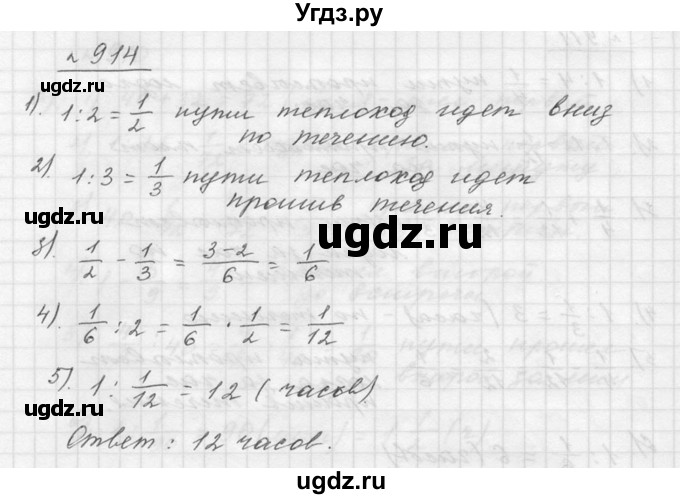 Угдз.ру
№ 914
1). 1:2 = 1/2 пути теплоход идет вниз
по течению.
2). 1:3 = 1/3 пути теплоход идет
против течения.
ugdz.ru
3). 1/2 - 1/3 = 3-2/6 = 1/6
4). 1/6 : 2 = 1/6 · 1/2 = 1/12
5). 1 : 1/12 = 12 (часов)
Ответ: 12 часов.
ugdz.ru
ugdz.ru
ugdz.ru
ugdz.ru
Угдз.ру